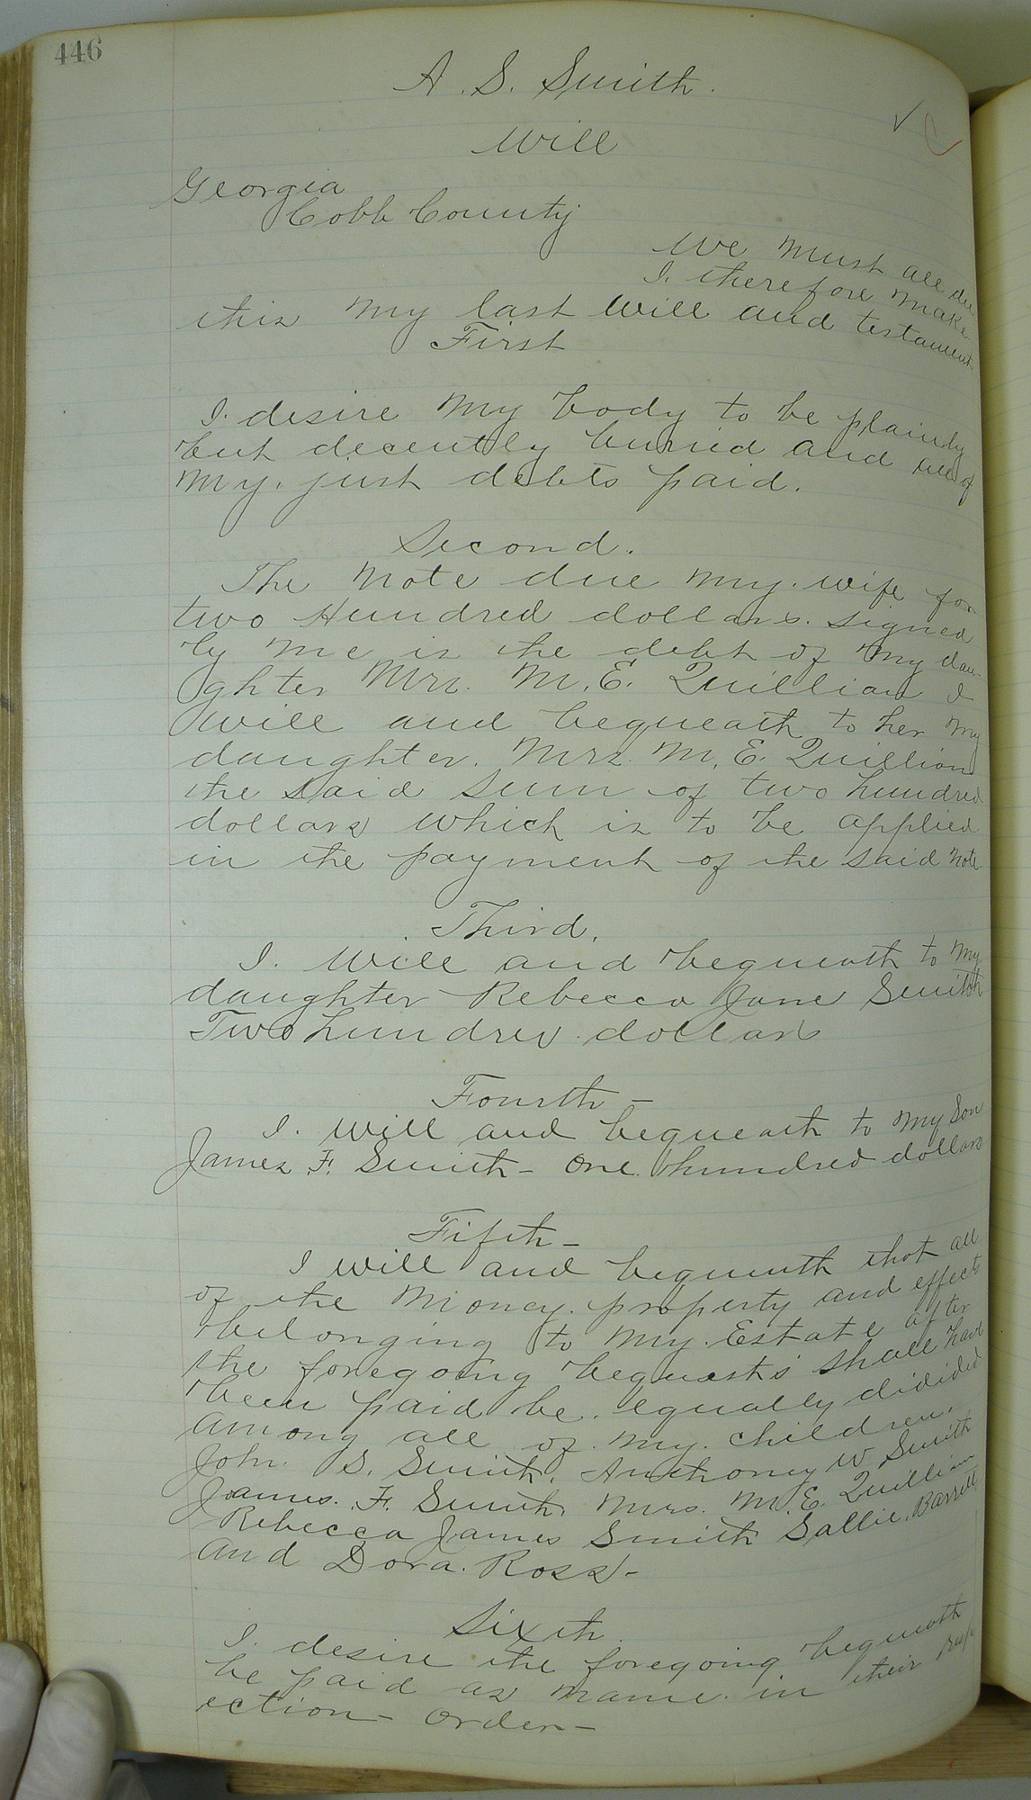 446
A. S. Smith.
Will
Georgia
Cobb County
We must all die
I. therefore make
this my last Will and testament
First
I. desire my body to be plainly
but decently buried and all of
my. just debts paid.
Second.
The Note due my. wife for
two Hundred dollars. signed
by me is the debt of my dau-
ghter Mrs. M. E. Quillian I
will and bequeath to her my
daughter. Mrs. M. E. Quillian
the said sum of two hundred
dollars which is to be applied
in the payment of the said note
Third.
I. Will and bequeath to my
daughter Rebecca Jane Smith
Two hundred dollars
Fourth -
I. Will and bequeath to my Son
James F. Smith - One hundred dollars
Fifth -
I will and bequeath that all
of the money. property and effects
belonging to my. Estate after
the foregoing bequests shall have
been paid be. equally divided
among all of my. children.
John S. Smith. Anthoney W Smith
James. F. Smith. Mrs. M. E. Quillian
Rebecca James Smith Sallie. Barrett
and Dora. Ross -
Sixth
I. desire the foregoing bequeath
be paid as name in their
ection - order -